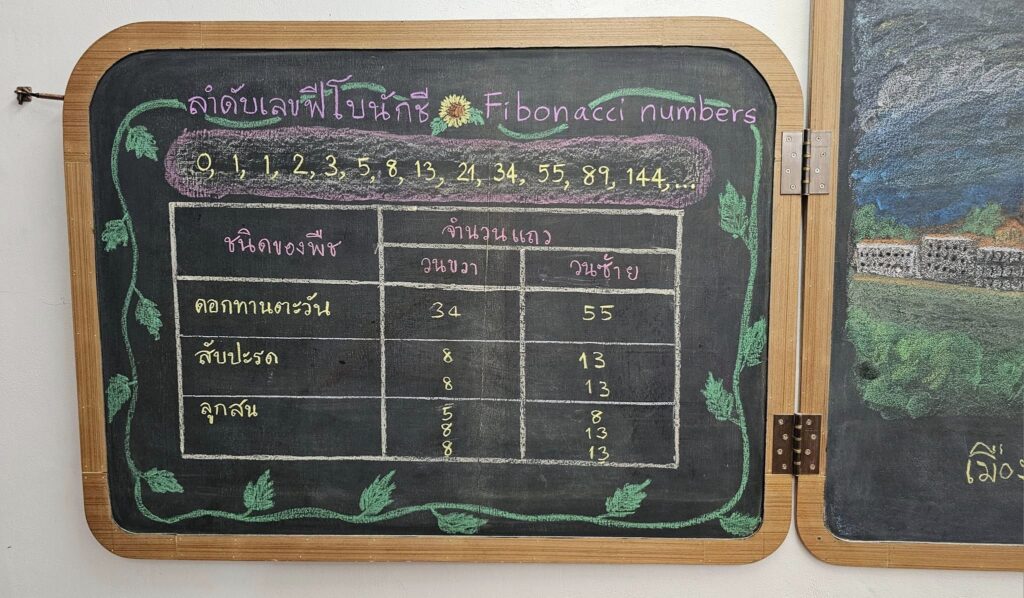 ลำดับเลขฟีโบนักชี Fibonacci numbers
0, 1, 1, 2, 3, 5, 8, 13, 21, 34, 55, 89, 144,...
ชนิดของพืช จำนวนแถว
วนขวา วนซ้าย
ดอกทานตะวัน 34 55
สับปะรด 8 13
8 13
ลูกสน 5 8
8 13
8 13
เมือง